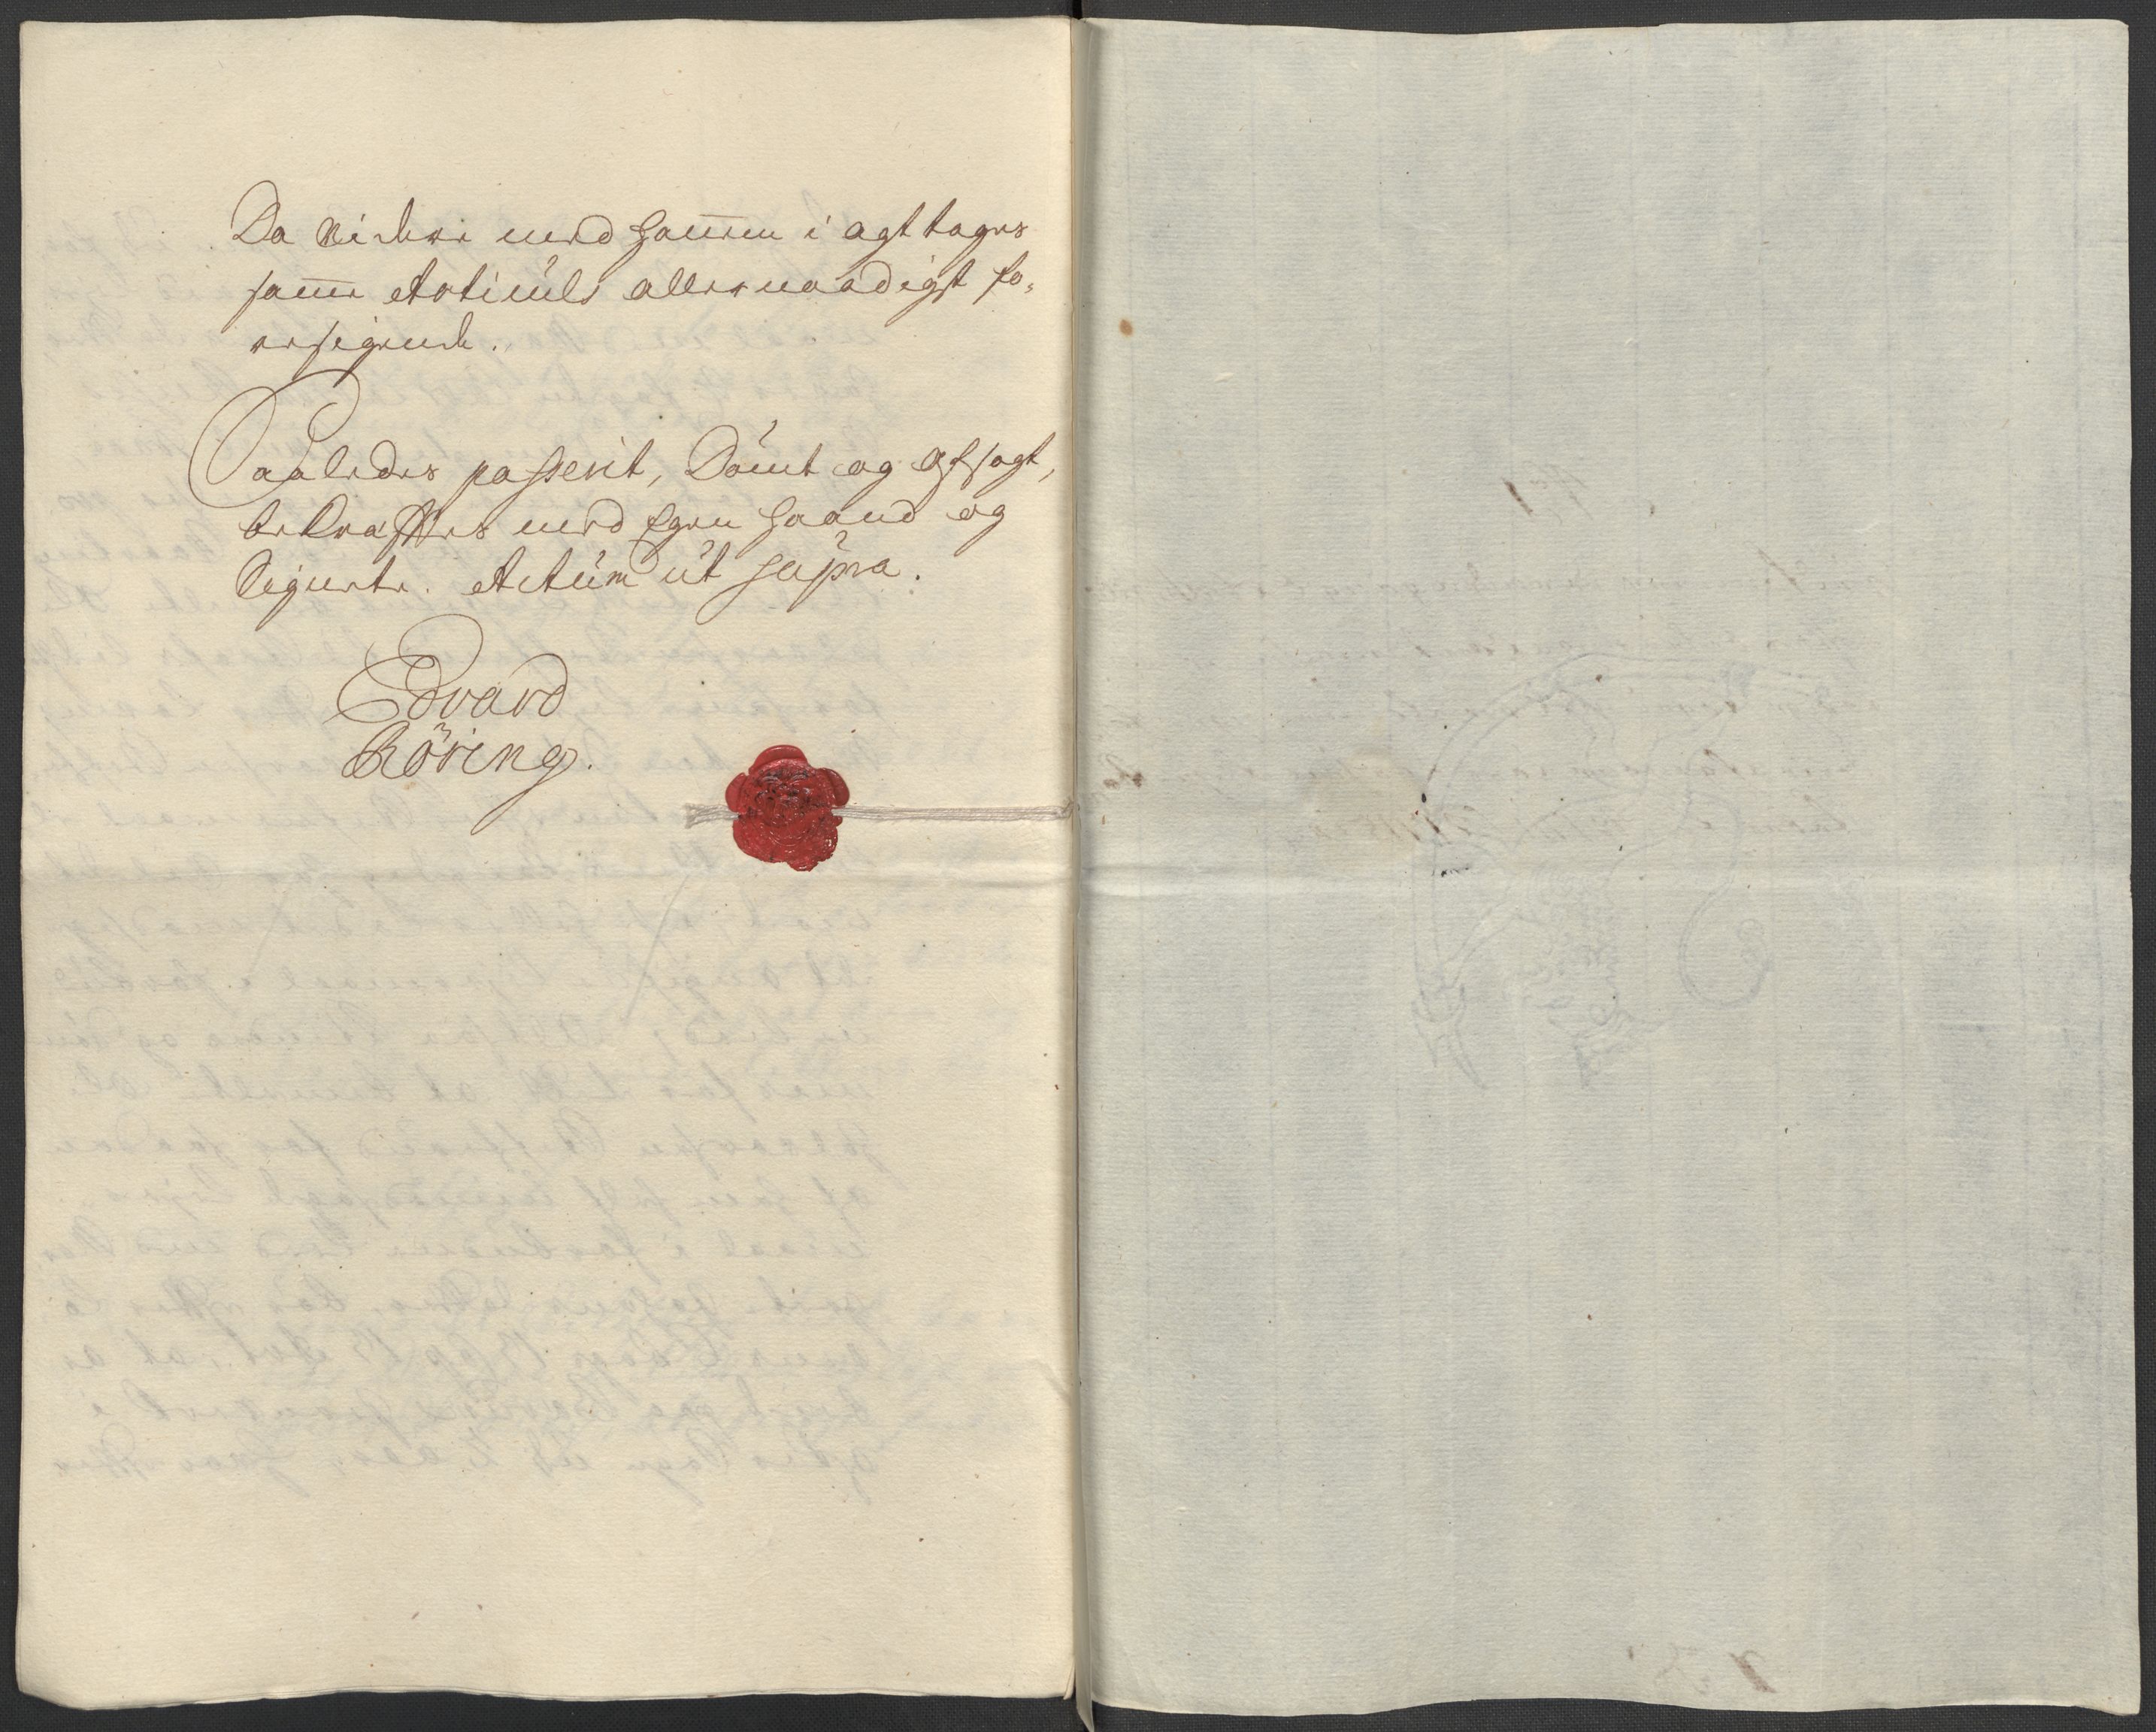 Da videre med ham̅em i agt tages
sam̅e Articuls allernaadigst fo-
ersigende.
Saaledes passerit, Dömt og afsagt,
bekræfftes med Egen Haand og
Signete. Actum ut supra.
Edvard
Röring.